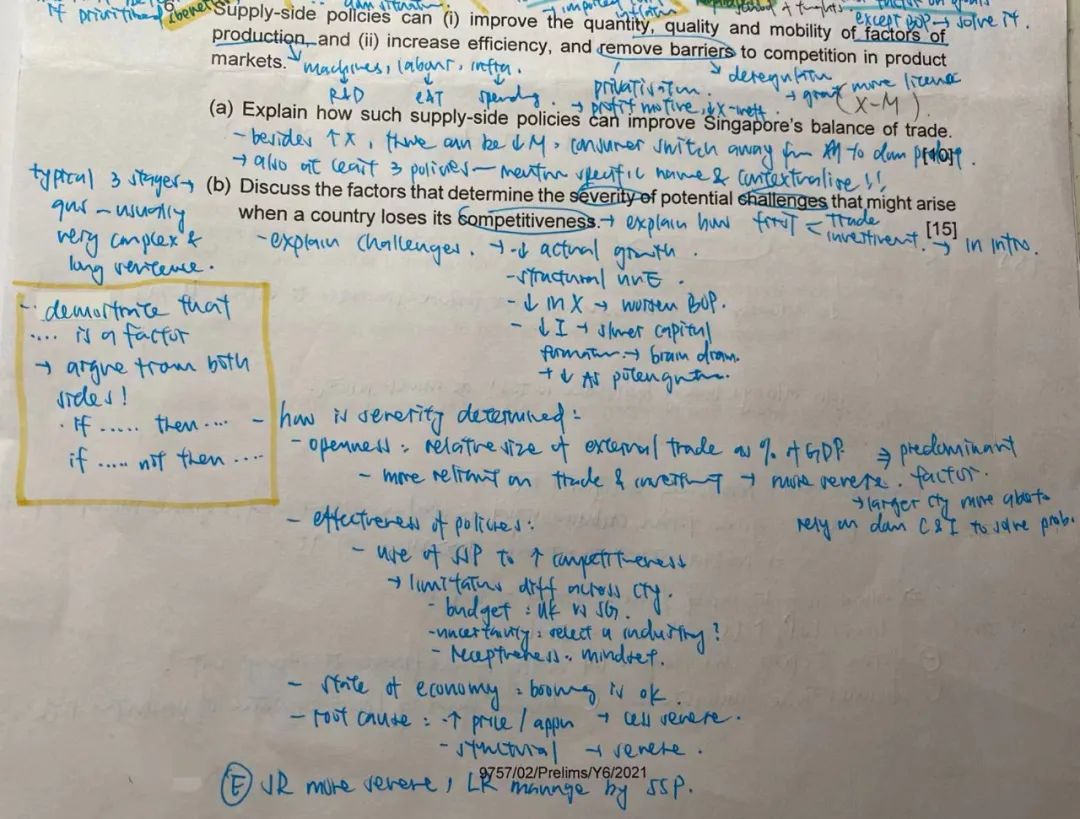 If prioritised
except BOP → solve it.
Supply-side policies can (i) improve the quantity, quality and mobility of factors of
production, and (ii) increase efficiency, and remove barriers to competition in product
markets.
machines, labour, infra.
R&D
spending.
privatisation.
→ profit motive, ↓X-ineff.
deregulation
→ grant more licence
(X-M)
(a) Explain how such supply-side policies can improve Singapore's balance of trade.
[10]
- besides ↑X, there can be ↓M. consumer switch away from M to dom
→ also at least 3 policies - mention specific name & contextualise!!
(b) Discuss the factors that determine the severity of potential challenges that might arise
when a country loses its competitiveness.
[15]
→ explain how
trade
investment.
→ in intro.
typical 3 stages →
qns - usually
very complex &
long sentence.
- demonstrate that
.... is a factor
→ argue from both
sides!
. If ...... then ....
if ..... not then ....
- explain challenges.
→ -↓ actual growth.
- structural unE.
- ↓ in X → worsen BOP.
- ↓I → slower capital
formation → brain drain.
→ ↓ AS
- how is severity determined:
- openness: relative size of external trade as % of GDP
⇒ predominant
factor.
- more reliant on trade & investment → more severe.
→ larger cty more able to
rely on dom C & I to solve prob.
- effectiveness of policies:
- use of SSP to ↑ competitiveness
→ limitations diff across cty.
- budget: UK vs SG.
- uncertainty: select a industry?
- receptiveness: mindset.
- state of economy: booming is ok.
- root cause: -↑ price / appn → less severe.
- structural → severe.
9757/02/Prelims/Y6/2021
(E) SR more severe, LR manage by SSP.